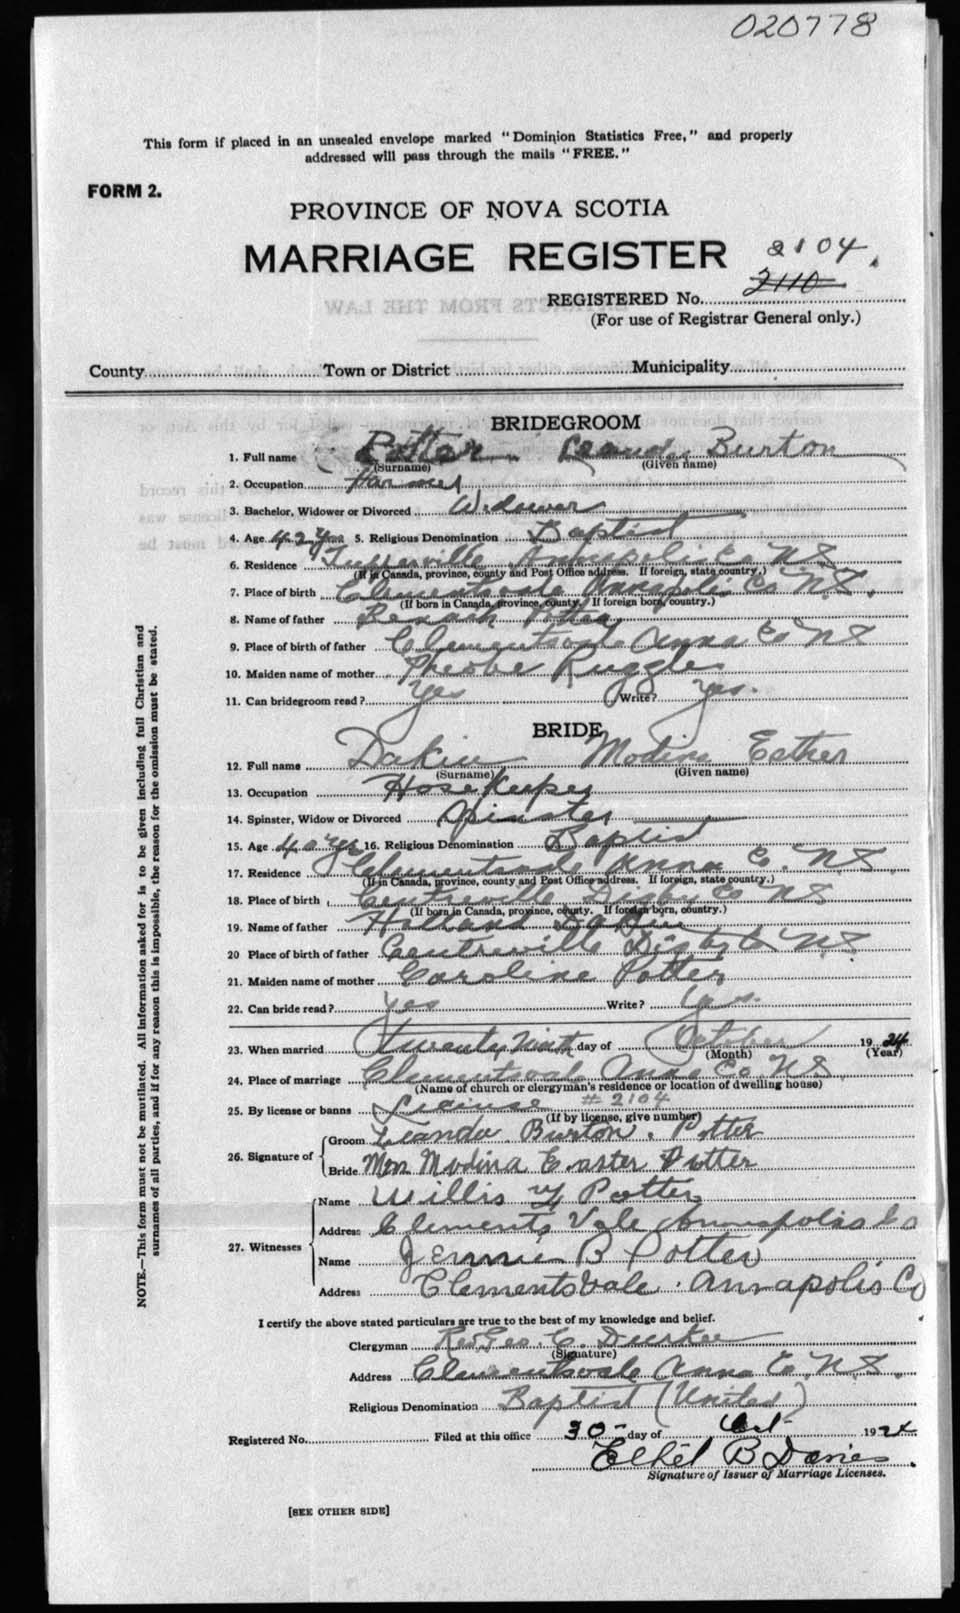 020778
This form if placed in an unsealed envelope marked "Dominion Statistics Free," and properly
addressed will pass through the mails "FREE."
FORM 2.
PROVINCE OF NOVA SCOTIA
MARRIAGE REGISTER
2104
2110
REGISTERED No.
(For use of Registrar General only.)
County Town or District Municipality
BRIDEGROOM
1. Full name Potter Burton
(Surname) (Given name)
2. Occupation Farmer
3. Bachelor, Widower or Divorced Widower
4. Age 42 yrs 5. Religious Denomination Baptist
6. Residence Annapolis Co N.S.
(If in Canada, province, county and Post Office address. If foreign, state country.)
7. Place of birth Clementsvale Annapolis Co N.S.
(If born in Canada, province, county. If foreign born, country.)
8. Name of father Potter
9. Place of birth of father Clementsvale Anna Co N S
10. Maiden name of mother Pheobe Ruggles
11. Can bridegroom read? Yes Write? Yes.
BRIDE
12. Full name Dakin Modina Esther
(Surname) (Given name)
13. Occupation Hosekeeper
14. Spinster, Widow or Divorced Spinster
15. Age 40 yrs 16. Religious Denomination Baptist
17. Residence Clementsvale Anna Co. N.S.
(If in Canada, province, county and Post Office address. If foreign, state country.)
18. Place of birth Centreville Digby Co N S
(If born in Canada, province, county. If foreign born, country.)
19. Name of father Holland Dakin
20 Place of birth of father Centreville Digby Co N.S.
21. Maiden name of mother Caroline Potter
22. Can bride read? yes Write? yes.
23. When married Twenty Ninth day of October 1924
(Month) (Year)
24. Place of marriage Clementsvale Anna Co N.S.
(Name of church or clergyman's residence or location of dwelling house)
25. By license or banns License #2104
(If by license, give number)
26. Signature of Groom Leander Burton. Potter
Bride Mrs Modina Easter Potter
27. Witnesses Name Willis Potter
Address Clements Vale Annapolis Co
Name Jennie B Potter
Address ClementsVale. Annapolis Co
I certify the above stated particulars are true to the best of my knowledge and belief.
Clergyman Rev Geo. C. Durkee
(Signature)
Address Clementsvale Anna Co N.S.
Religious Denomination Baptist (United)
Registered No. Filed at this office 30 - day of Oct 1924
Ethel B Davies
Signature of Issuer of Marriage Licenses.
[SEE OTHER SIDE]
NOTE.—This form must not be mutilated. All information asked for is to be given including full Christian and
surnames of all parties, and if for any reason this is impossible, the reason for the omission must be stated.